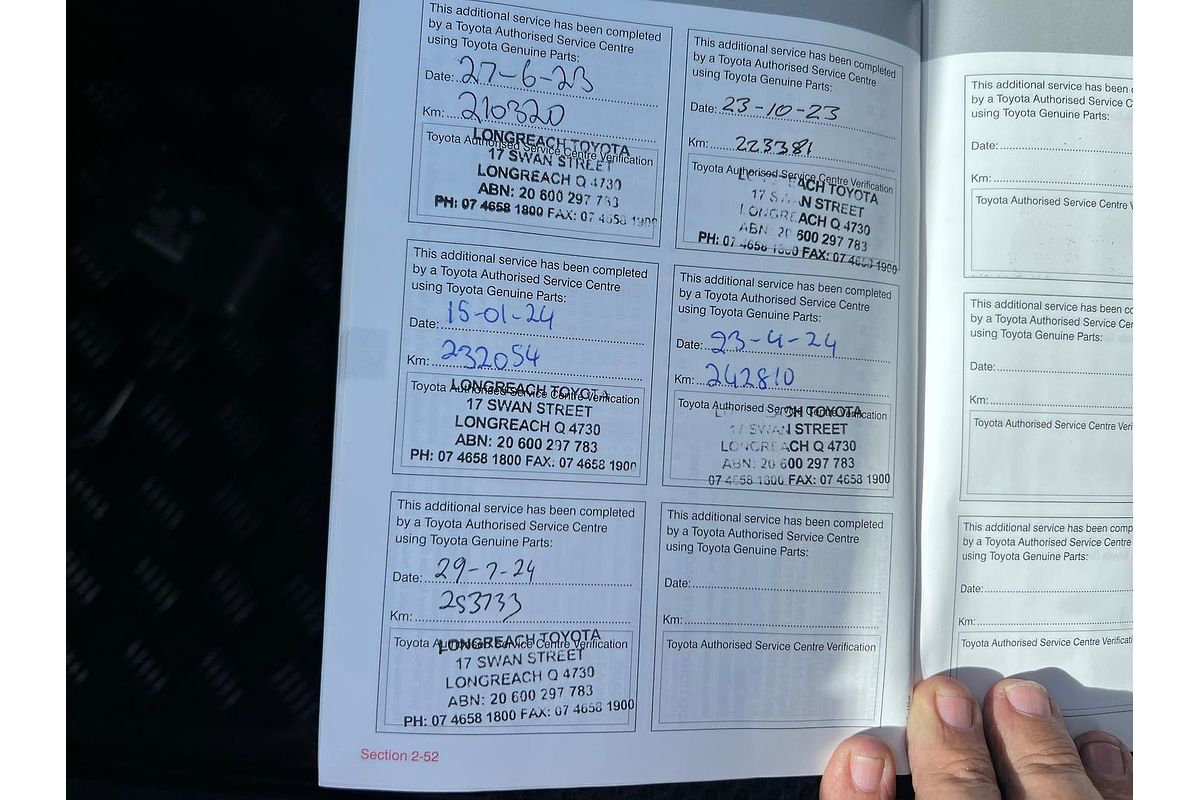 This additional service has been completed
by a Toyota Authorised Service Centre
using Toyota Genuine Parts:
Date: 27-6-23
Km: 210320
Toyota Authorised Service Centre Verification
LONGREACH TOYOTA
17 SWAN STREET
LONGREACH Q 4730
ABN: 20 600 297 783
PH: 07 4658 1800 FAX: 07 4658 1900
This additional service has been completed
by a Toyota Authorised Service Centre
using Toyota Genuine Parts:
Date: 23-10-23
Km: 223381
Toyota Authorised Service Centre Verification
LONGREACH TOYOTA
17 SWAN STREET
LONGREACH Q 4730
ABN: 20 600 297 783
PH: 07 4658 1800 FAX: 07 4658 1900
This additional service has been completed
by a Toyota Authorised Service Centre
using Toyota Genuine Parts:
Date: 15-01-24
Km: 232054
Toyota Authorised Service Centre Verification
LONGREACH TOYOTA
17 SWAN STREET
LONGREACH Q 4730
ABN: 20 600 297 783
PH: 07 4658 1800 FAX: 07 4658 1900
This additional service has been completed
by a Toyota Authorised Service Centre
using Toyota Genuine Parts:
Date: 23-4-24
Km: 242810
Toyota Authorised Service Centre Verification
LONGREACH TOYOTA
17 SWAN STREET
LONGREACH Q 4730
ABN: 20 600 297 783
07 4658 1800 FAX: 07 4658 1900
This additional service has been completed
by a Toyota Authorised Service Centre
using Toyota Genuine Parts:
Date: 29-7-24
Km: 253733
Toyota Authorised Service Centre Verification
LONGREACH TOYOTA
17 SWAN STREET
LONGREACH Q 4730
ABN: 20 600 297 783
PH: 07 4658 1800 FAX: 07 4658 1900
This additional service has been completed
by a Toyota Authorised Service Centre
using Toyota Genuine Parts:
Date:
Km:
Toyota Authorised Service Centre Verification
Section 2-52
This additional service has been
by a Toyota Authorised Service
using Toyota Genuine Parts:
Date:
Km:
Toyota Authorised Service Centre
This additional service has been
by a Toyota Authorised Service
using Toyota Genuine Parts:
Date:
Km:
Toyota Authorised Service Centre
This additional service has been
by a Toyota Authorised Service
using Toyota Genuine Parts:
Date:
Km:
Toyota Authorised Service Centre